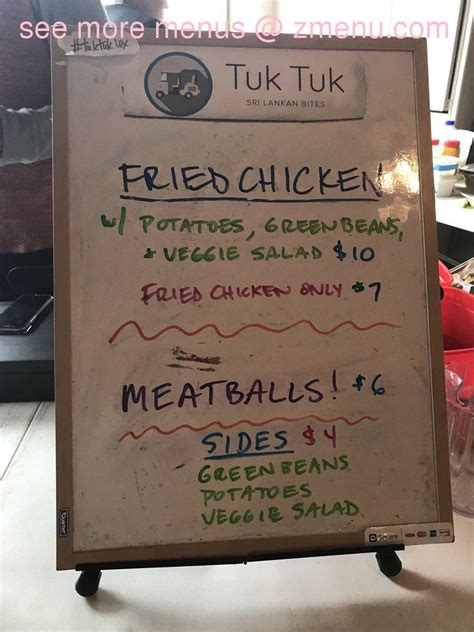 see more menus @ zmenu.com
#tuktuklex
Tuk Tuk
SRI LANKAN BITES
FRIED CHICKEN
w/ POTATOES, GREEN BEANS,
+ VEGGIE SALAD $10
FRIED CHICKEN ONLY $7
MEATBALLS! $6
SIDES $4
GREEN BEANS
POTATOES
VEGGIE SALAD
Quartet
Square VISA